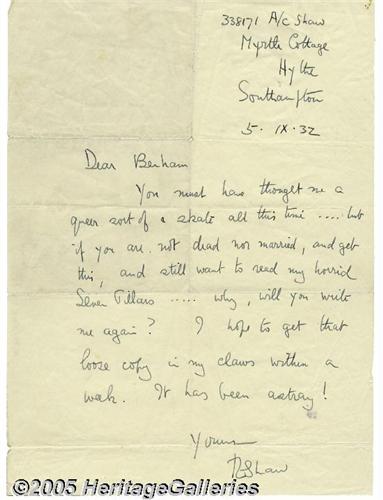 338171 A/c Shaw
Myrtle Cottage
Hythe
Southampton
5. IX. 32
Dear Benham
You must have thought me a
queer sort of a skate all this time .... but
if you are not dead nor married, and get
this, and still want to read my horrid
Seven Pillars ..... why, will you write
me again? I hope to get that
loose copy in my claws within a
week. It has been astray!
Yours
TEShaw
©2005 HeritageGalleries